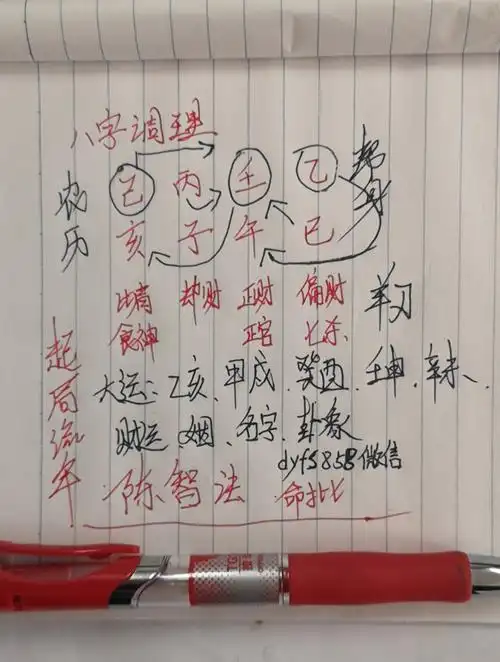 八字调理
农历
己 丙 壬 乙
亥 子 午 巳
帮身
比肩 劫财 正财 偏财
食神 正官 七杀
羊刃
起局流年
大运:乙亥、甲戌、癸酉、壬申、辛未、
财运 姻、名字、卦象
dyf5858微信
陈智法 命批